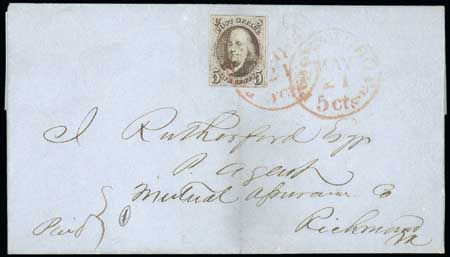 POST OFFICE
5 5
MAY
21
5 cts
MAY
21
5 cts
J Rutherford Esqr
P. Agent
Mutual Assuranc
Richmond
Va
Paid
1